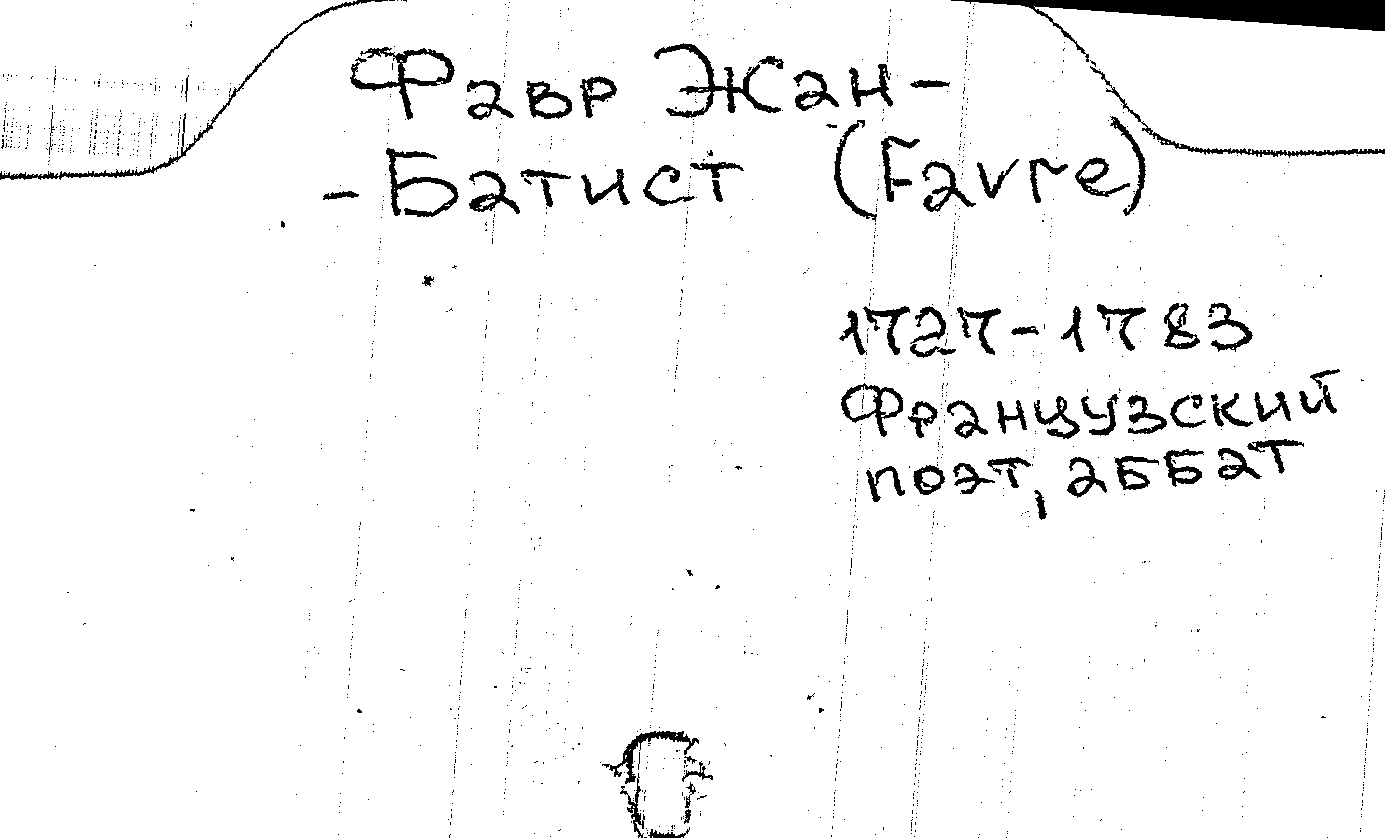 Фавр Жан-
-Батист (Favre)
1727-1783
Французский
поэт, аббат